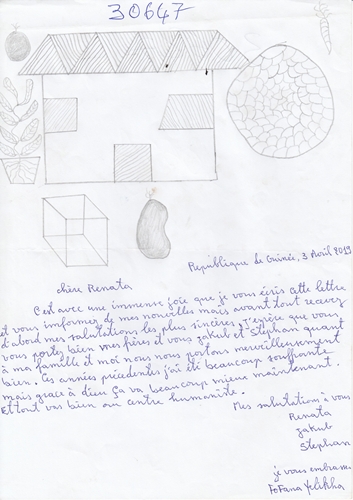 30647
République de Guinée, 3 Avril 2019
chère Renata
C'est avec une immense joie que je vous écris cette lettre
et vous informer de mes nouvelles mais avant tout recevez
d'abord mes salutations les plus sincères j'espère que vous
vous portez bien vos frères et vous Jakub et Stephan quant
à ma famille et moi nous nous portons merveilleusement
bien. Ces années précedentes j'ai été beaucoup souffrante
mais grace à dieu ça va beaucoup mieux maintenant.
Et tout vas bien au centre humaniste.
Mes salutations à vous
Renata
Jakub
Stephan
je vous embrasse
FOFana